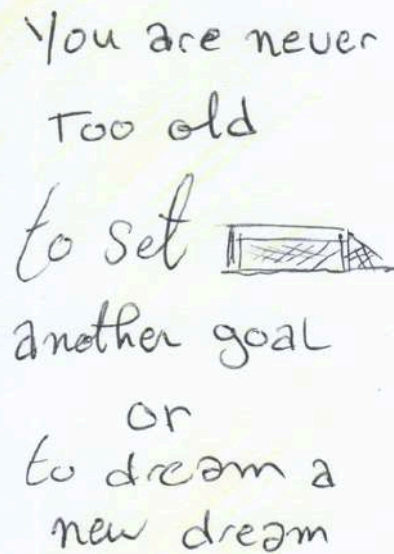 You are never
Too old
to set
another goal
or
to dream a
new dream